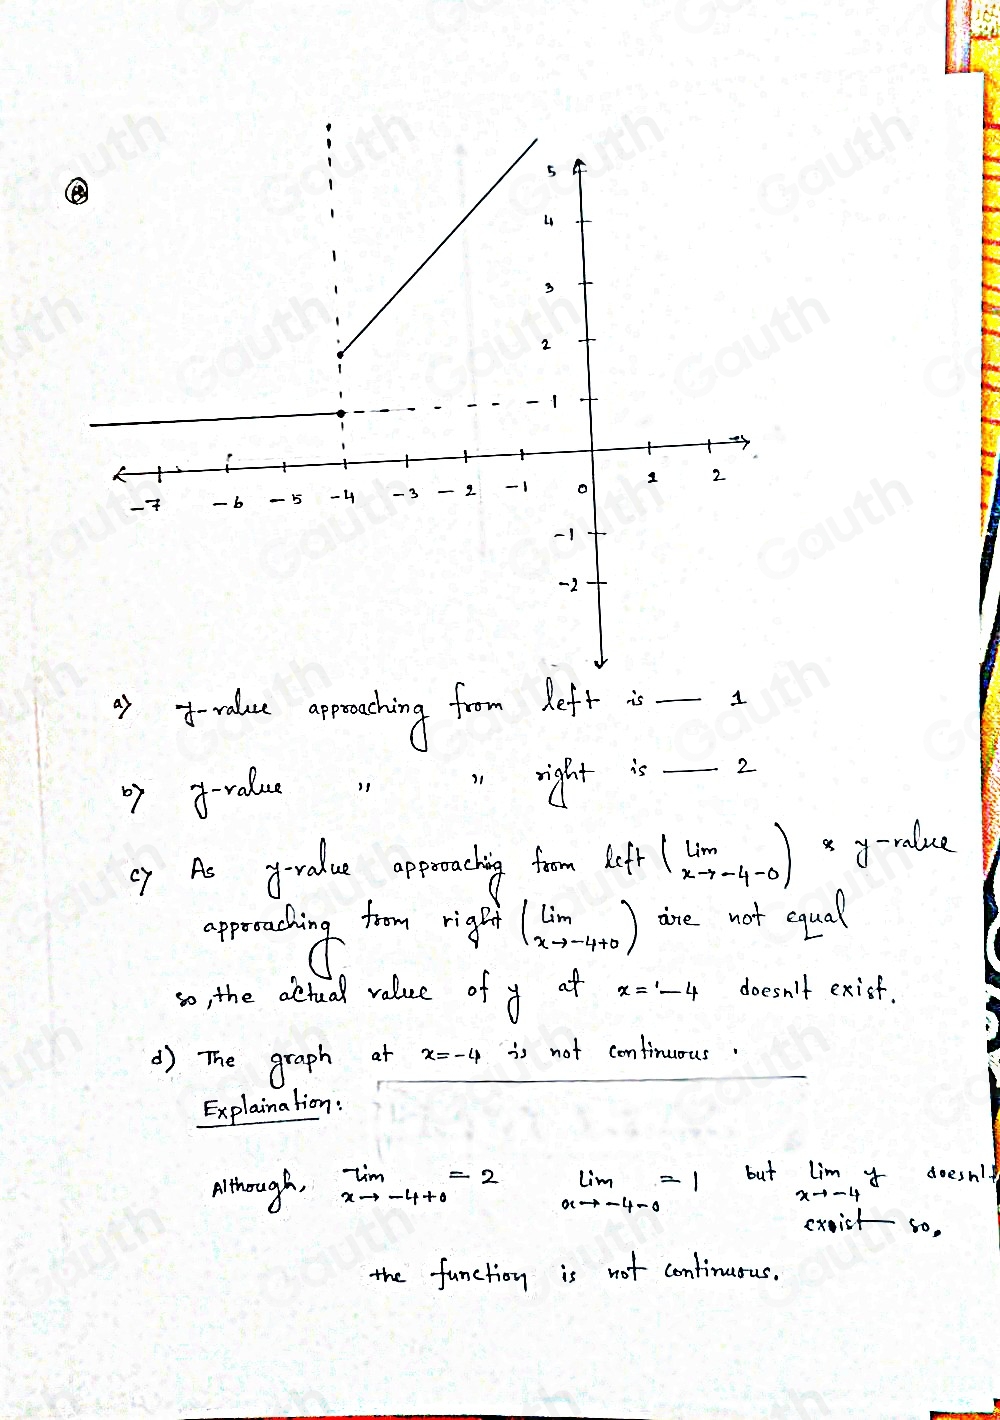 5
4
3
2
-1
-7 -6 -5 -4 -3 -2 -1 0 1 2
-1
-2
a) y-value approaching from left is — 1
b) y-value " " right is — 2
c) As y-value approaching from left (lim x→-4-0) & y-value
approaching from right (lim x→-4+0) are not equal
so, the actual value of y at x=-4 doesn't exist.
d) The graph at x=-4 is not continuous.
Explaination:
Although, lim x→-4+0 = 2 lim x→-4-0 = 1 but lim x→-4 y doesn't
exist so,
the function is not continuous.
Gauth